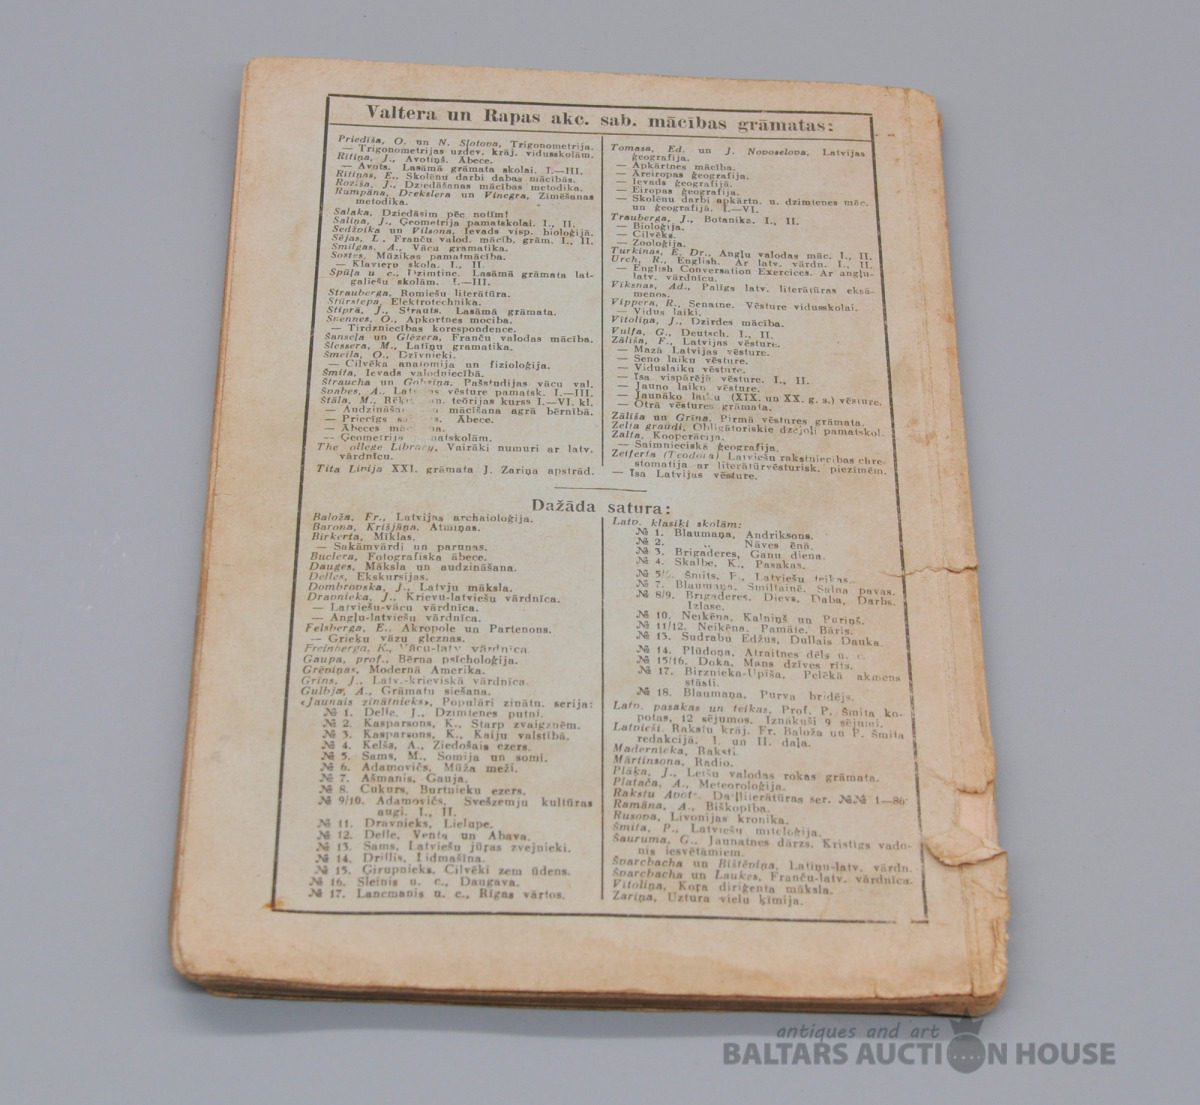 Valtera un Rapas akc. sab. mācības grāmatas:
Priedīša, O. un N. Slotona, Trigonometrija.
— Trigonometrijas uzdev. krāj. vidusskolām.
Rītiņa, J., Avotiņš. Ābece.
— Avots. Lasāmā grāmata skolai. I.—III.
Rītiņas, E., Skolēnu darbi dabas mācībās.
Roziša, J., Dziedāšanas mācības metodika.
Rumpāna, Drekslera un Vinegra, Zīmēšanas
metodika.
Salaka, Dziedāsim pēc notīm!
Saliņa, J., Ģeometrija pamatskolai. I., II.
Sedžvika un Vilsona, Ievads visp. bioloģijā.
Sējas, L., Franču valod. mācīb. grām. I., II.
Smilgas, A., Vācu gramatika.
Sostes, Mūzikas pamatmācība.
— Klavieru skola. I., II.
Spūļa u c., Dzimtine. Lasāmā grāmata lat-
galiešu skolām. I.—III.
Strauberga, Romiešu literātūra.
Stūrstepa, Elektrotechnika.
Stiprā, J., Strauts. Lasāmā grāmata.
Svennes, O., Apkortnes mociba.
— Tirdzniecības korespondence.
Šanseļa un Glēzera, Franču valodas mācība.
Šlessera, M., Latīņu gramatika.
Šmeila, O., Dzīvnieki.
— Cilvēka anatomija un fizioloģija.
Šmita, Ievads valodniecībā.
Štraucha un Gobziņa. Pašstudijas vācu val.
Švābes, A., vēsture pamatsk. I.—III.
Štāla, M., teōrijas kurss I.—VI. kl.
— mācīšana agrā bērnībā.
— Priecīgs Ābece.
— Ābeces
— Ģeometrija
The ollege Library, Vairāki numuri ar latv.
vārdnīcu.
Tita Livija XXI. grāmata J. Zariņa apstrād.
Tomasa, Ed. un J. Novoselova, Latvijas
ģeografija.
— Apkārtnes mācība.
— Āreiropas ģeografija.
— Ievads ģeografijā.
— Eiropas ģeografija.
— Skolēnu darbi apkārtn. u. dzimtenes māc.
un ģeografijā. I.—VI.
Trauberga, J., Botanika. I., II.
— Bioloģija.
— Cilvēks.
— Zooloģija.
Turkinas, E. Dr., Angļu valodas māc. I., II.
Urch, R., English. Ar latv. vārdn. I., II.
— English Conversation Exercices. Ar angļu-
latv. vārdnīcu.
Viksnas, Ad., Palīgs latv. literātūras eksā-
menos.
Vippera, R., Senatne. Vēsture vidusskolai.
— Vidus laiki.
Vitoliņa, J., Dzirdes mācība.
Vulfa, G., Deutsch. I., II.
Zālīša, F., Latvijas vēsture.
— Mazā Latvijas vēsture.
— Seno laiku vēsture.
— Viduslaiku vēsture.
— Īsa vispārējā vēsture. I., II.
— Jauno laiku vēsture.
— Jaunāko laiku (XIX. un XX. g. s.) vēsture.
— Otrā vēstures grāmata.
Zālīša un Grina, Pirmā vēstures grāmata.
Zelta graudi. Obligātoriskie dzejoļi pamatskol.
Zalta, Kooperācija.
— Saimnieciskā ģeografija.
Zeiferta (Teodora) Latviešu rakstniecības chre-
stomatija ar literātūrvēsturisk. piezīmēm.
— Īsa Latvijas vēsture.
Dažāda satura:
Baloža, Fr., Latvijas archaioloģija.
Barona, Krišjāņa, Atmiņas.
Birkerta, Mīklas.
— Sakāmvārdi un parunas.
Buclera, Fotografiska ābece.
Dauges, Māksla un audzināšana.
Delles, Ekskursijas.
Dombrovska, J., Latvju māksla.
Dravnieka, J., Krievu-latviešu vārdnīca.
— Latviešu-vācu vārdnīca.
— Angļu-latviešu vārdnīca.
Felsberga, E., Akropole un Partenons.
— Grieķu vāzu gleznas.
Freinberga, K., Vācu-latv vārdnīca.
Gaupa, prof., Bērna psīcholoģija.
Grēviņas, Modernā Amerika.
Grīns, J., Latv.-krieviskā vārdnīca.
Gulbja, A., Grāmatu siešana.
«Jaunais zinātnieks», Populāri zinātn. serija:
№ 1. Delle, J., Dzimtenes putni.
№ 2. Kasparsons, K., Starp zvaigznēm.
№ 3. Kasparsons, K., Kaiju valstībā.
№ 4. Kelša, A., Ziedošais ezers.
№ 5. Sams, M., Somija un somi.
№ 6. Adamovičs, Mūža meži.
№ 7. Ašmanis, Gauja.
№ 8. Cukurs, Burtnieku ezers.
№ 9/10. Adamovičs, Svešzemju kultūras
augi. I., II.
№ 11. Dravnieks, Lielupe.
№ 12. Delle, Venta un Abava.
№ 13. Sams, Latviešu jūras zvejnieki.
№ 14. Drillis, Lidmašīna.
№ 15. Girupnieks, Cilvēki zem ūdens.
№ 16. Sleinis u. c., Daugava.
№ 17. Lancmanis u. c., Rīgas vārtos.
Latv. klasiķi skolām:
№ 1. Blaumaņa, Andriksons.
№ 2. „ Nāves ēnā.
№ 3. Brigaderes, Ganu diena.
№ 4. Skalbe, K., Pasakas.
№ Šmits, P., Latviešu teikas.
№ 7. Blaumaņa, Smiltainē. Salna pavas.
№ 8/9. Brigaderes, Dievs, Daba, Darbs.
Izlase.
№ 10. Neikēna, Kalniņš un Puriņš.
№ 11/12. Neikēna, Pamāte, Bāris.
№ 13. Sudrabu Edžus, Dullais Dauka.
№ 14. Plūdoņa, Atraitnes dēls u. c.
№ 15/16. Doka, Mans dzīves rīts.
№ 17. Birznieka-Upīša, Pelēkā akmens
stāsti.
№ 18. Blaumaņa, Purva bridējs.
Latv. pasakas un teikas, Prof. P. Šmita ko-
potas, 12 sējumos. Iznākuši 9 sējumi.
Latvieši. Rakstu krāj. Fr. Baloža un P. Šmita
redakcijā. I. un II. daļa.
Madernieka, Raksti.
Mārtinsona, Radio.
Plāķa, J., Leišu valodas rokas grāmata.
Platača, A., Meteoroloģija.
Rakstu Avots. Daiļliterātūras ser. №№ 1—86
Ramāna, A., Biškopība.
Rusova, Livonijas kronika.
Šmita, P., Latviešu mitoloģija.
Šauruma, G., Jaunatnes dārzs. Kristīgs vado-
nis iesvētāmiem.
Švarcbacha un Bištēviņa, Latīņu-latv. vārdn.
Švarcbacha un Laukes, Franču-latv. vārdnīca.
Vitoliņa, Kora diriģenta māksla.
Zariņa, Uztura vielu ķīmija.
antiques and art
BALTARS AUCTION HOUSE